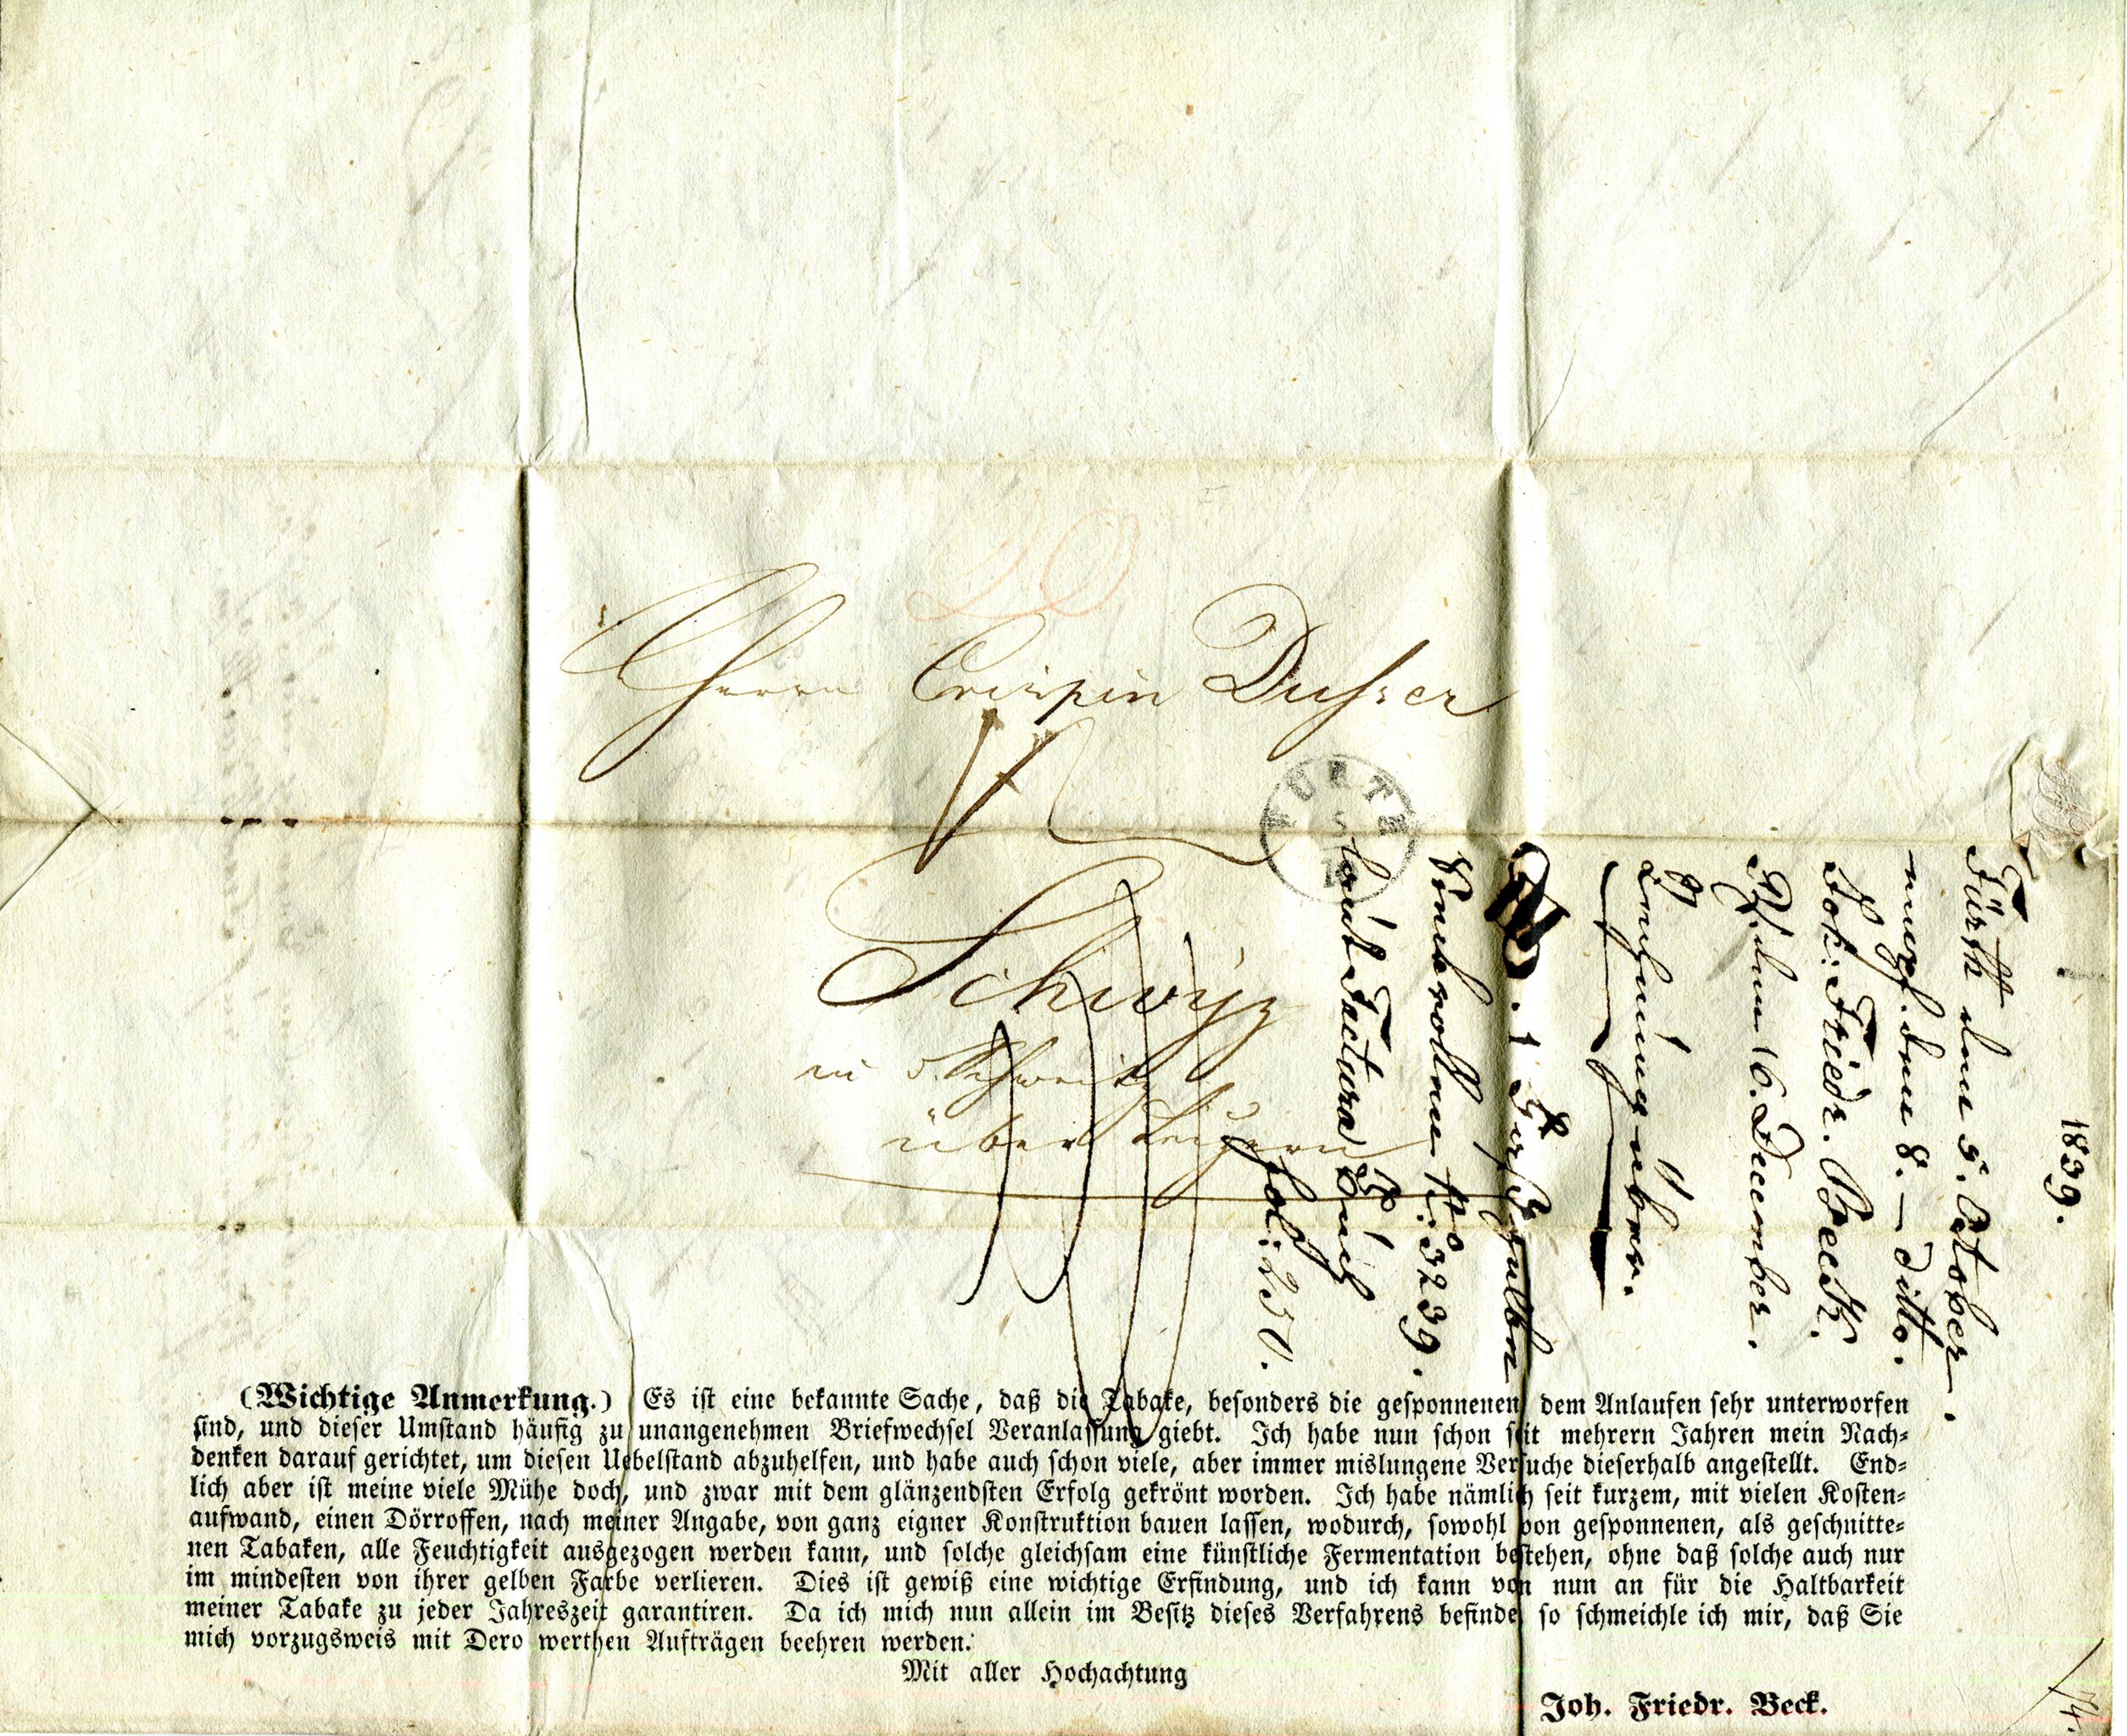 20
Herrn Crispin Dusser
Schwyz
in d. Schweitz
über Luzern
FÜRTH
1839.
Fürth den 5. October.
empf. den 8. – ditto.
Joh: Friedr. Beck.
den 16. December.
No: 3239.
laut Factura
fol: 250.
(Wichtige Anmerkung.) Es ist eine bekannte Sache, daß die Tabake, besonders die gesponnenen dem Anlaufen sehr unterworfen
sind, und dieser Umstand häufig zu unangenehmen Briefwechsel Veranlassung giebt. Ich habe nun schon seit mehrern Jahren mein Nach-
denken darauf gerichtet, um diesen Uebelstand abzuhelfen, und habe auch schon viele, aber immer mislungene Versuche dieserhalb angestellt. End-
lich aber ist meine viele Mühe doch, und zwar mit dem glänzendsten Erfolg gekrönt worden. Ich habe nämlich seit kurzem, mit vielen Kosten-
aufwand, einen Dörroffen, nach meiner Angabe, von ganz eigner Konstruktion bauen lassen, wodurch, sowohl von gesponnenen, als geschnitte-
nen Tabaken, alle Feuchtigkeit ausgezogen werden kann, und solche gleichsam eine künstliche Fermentation bestehen, ohne daß solche auch nur
im mindesten von ihrer gelben Farbe verlieren. Dies ist gewiß eine wichtige Erfindung, und ich kann von nun an für die Haltbarkeit
meiner Tabake zu jeder Jahreszeit garantiren. Da ich mich nun allein im Besitz dieses Verfahrens befinde, so schmeichle ich mir, daß Sie
mich vorzugsweis mit Dero werthen Aufträgen beehren werden.
Mit aller Hochachtung
Joh. Friedr. Beck.